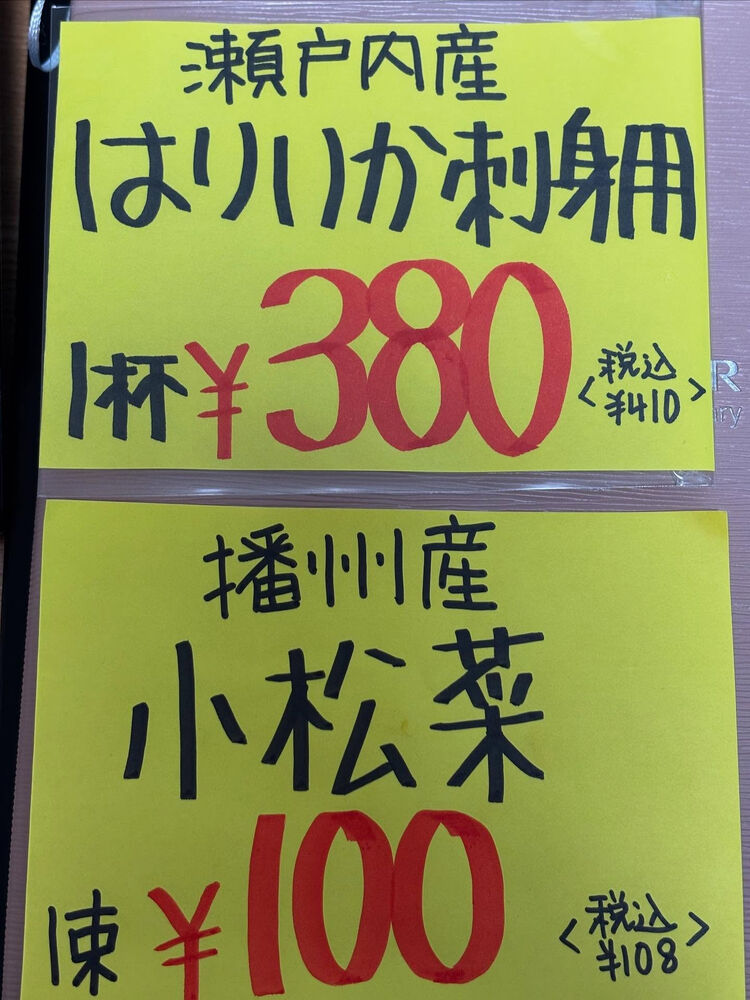 瀬戸内産
はりいか刺身用
1杯 ¥380
<税込
¥410>
R
ry
播州産
小松菜
1束 ¥100
<税込
¥108>